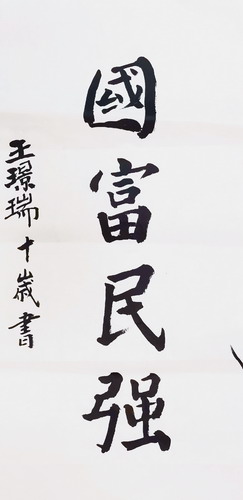 國富民强
王璟瑞十歲書